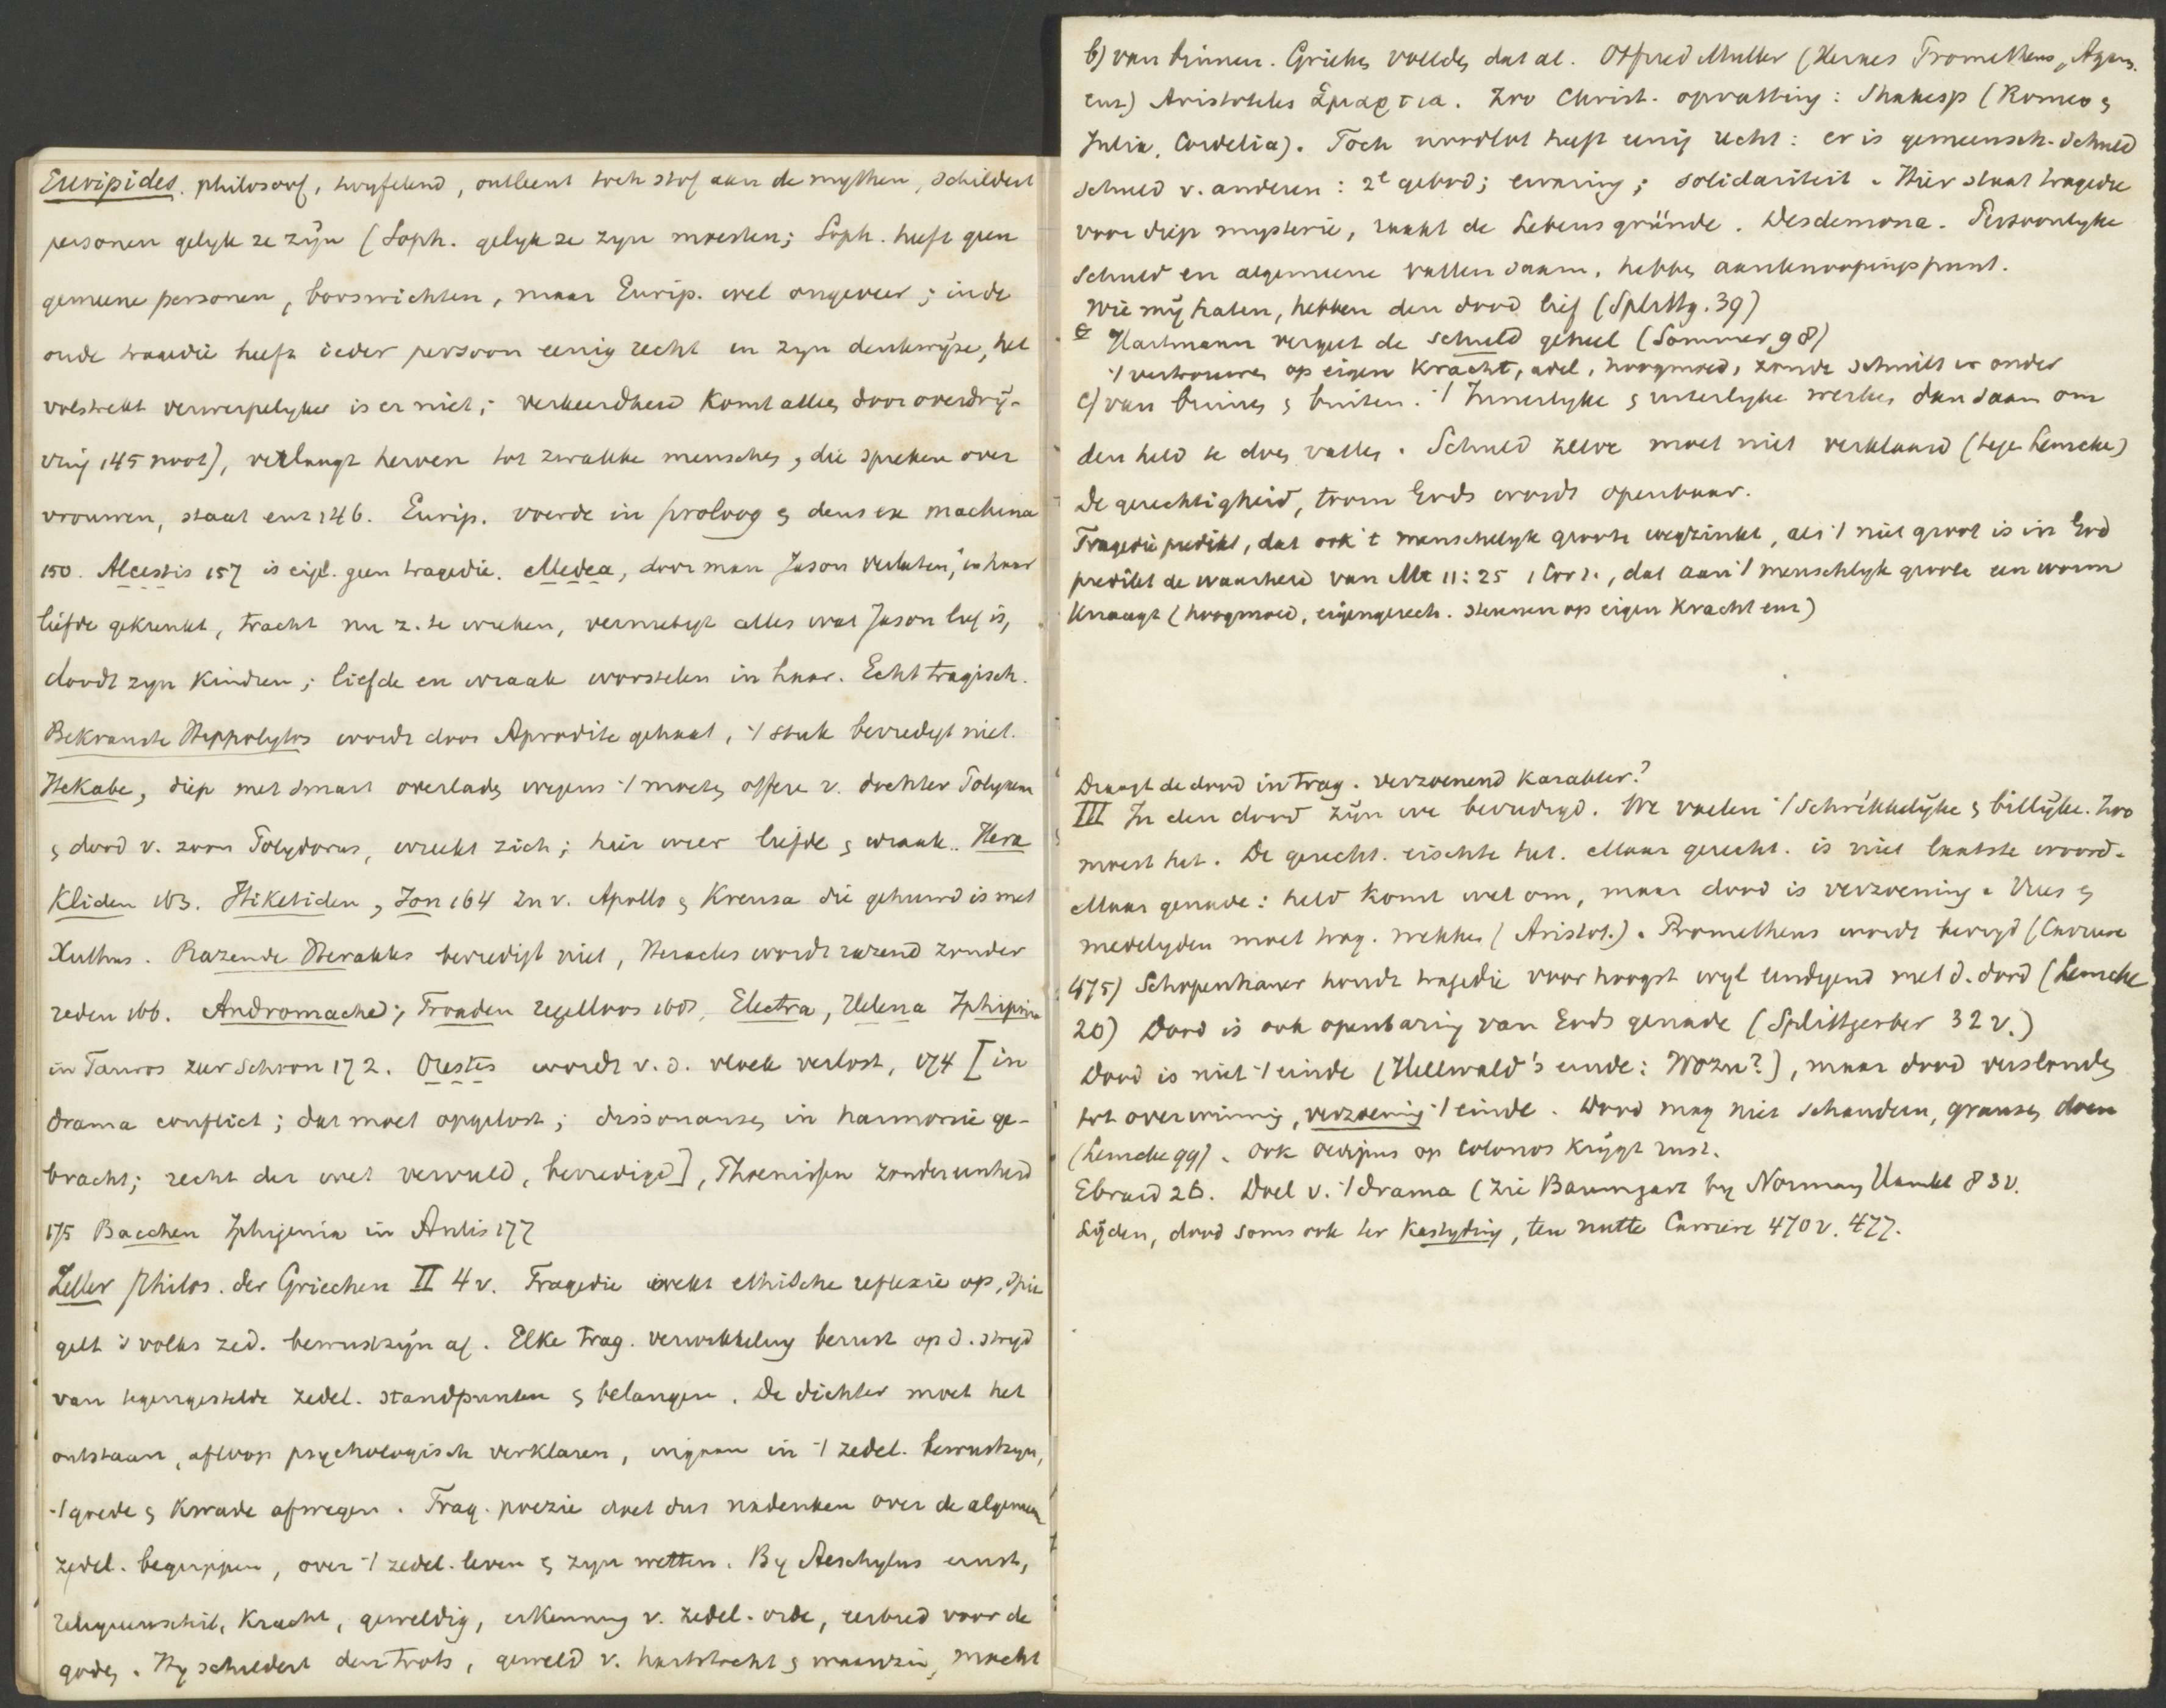 Euripides. philosoof, twyfelend, ontleent toch stof aan de mythen, schildert
personen gelyk ze zyn (Soph. gelyk ze zyn moesten; Soph. heeft geen
gemeene personen, booswichten, maar Eurip. wel ongeveer; in de
oude tragedie heeft ieder persoon eenig recht in zyn denkwyze, het
volstrekt verwerpelyke is er niet; verkeerdheid komt alles door overdrij-
ving 145 noot), verlaagt heroen tot zwakke menschen, die spreken over
vrouwen, staat enz 146. Eurip. voerde in proloog & deus ex machina
150. Alcestis 157 is eigl. geen tragedie. Medea, door man Jason verlaten, in haar
liefde gekrenkt, tracht nu z. te wreken, vernietigt alles wat Jason lief is,
doodt zyn kindren; liefde en wraak worstelen in haar. Echt tragisch.
Bekranste Hippolytos wordt door Aprodite gehaat, 't stuk bevredigt niet.
Hekabe, diep met smart overladen wegens 't moeten offeren v. dochter Polyxena
& dood v. zoon Polydorus, wreekt zich; hier weer liefde & wraak. Hera
kliden 163. Hiketiden, Ion 164 zn v. Apollo & Kreusa die gehuwd is met
Xuthus. Razende Herakles bevredigt niet, Heracles wordt razend zonder
reden 166. Andromache; Troaden regelloos 168, Electra, Helena Iphigenia
in Tauros zeer schoon 172. Orestes wordt v. d. vloek verlost, 174 [in
drama conflict; dat moet opgelost; dissonansen in harmonie ge-
bracht; recht der wet vervuld, bevredigd], Phoenissen zonder eenheid
175 Bacchen Iphigenia in Aulis 177
Zeller Philos. der Griechen II 4 v. Tragedie wekt ethische reflexie op, spie
gelt 's volks zed. bewustzyn af. Elke trag. verwikkeling berust op d. stryd
van tegengestelde zedel. standpunten & belangen. De dichter moet het
ontstaan, afloop psychologisch verklaren, ingaan in 't zedel. bewustzyn,
't goede & kwade afwegen. Trag. poezie doet dus nadenken over de algemeen
zedel. begrippen, over 't zedel. leven & zyn wetten. By Aeschylus ernst,
kracht, geweldig, erkenning v. zedel. orde, eerbied voor de
goden. Hy schildert den trots, geweld v. hartstocht & waanzin, macht
b) van binnen. Grieken voelden dat al. Otfried Muller (Hermes Prometheus, Agam.
enz) Aristoteles ἁμαρτια. Zoo Christ. opvatting: Shakesp (Romeo &
Julia, Cordelia). Toch noodlot heeft eenig recht: er is gemeensch. schuld
schuld v. anderen: 2e gebod; ervaring; solidariteit. Hier staat tragedie
voor diep mysterie, raakt de Lebensgründe. Desdemona. Persoonlyke
schuld en algemeene vallen saam, hebben aanknoopingspunt.
Wie my haten, hebben den dood lief (Splittg. 39)
Hartmann vergeet de schuld geheel (Sommer 98)
't vertrouwen op eigen kracht, adel, hoogmoed, zonde schuilt er onder
c) van binnen & buiten. 't Innerlyke & uiterlyke werken dan saam om
den held te doen vallen. Schuld zelve moet niet verklaard (tegen Lemcke)
De gerechtigheid, toorn Gods wordt openbaar.
Tragedie predikt, dat ook 't menschelyk groote wegzinkt, als 't niet groot is in God
predikt de waarheid van Mt 11:25 1 Cor 1., dat aan 't menschlyk groote een worm
knaagt (hoogmoed, eigengerech. steunen op eigen kracht enz)
Draagt de dood in trag. verzoenend karakter?
III In den dood zyn we bevredigd. We voelen 't schrikkelyke & billyke. Zoo
moest het. De gerecht. eischte het. Maar gerecht. is niet laatste woord.
Maar genade: held komt wel om, maar dood is verzoening. Vrees &
medelyden moet trag. wekken (Aristot.). Prometheus wordt bevryd (Carriere
475) Schopenhauer houdt tragedie voor hoogst wyl eindigend met d. dood (Lemcke
20) Dood is ook openbaring van Gods genade (Splittgerber 32 v.)
Dood is niet 't einde (Hellwald's einde: Wozu?), maar dood verslonden
tot overwinning, verzoening 't einde. Dood mag niet schaudern, grausen doen
(Lemcke 99). Ook Oedipus op Colonos krygt rust.
Ebrard 26. Doel v. 't drama (zie Baumgart by Normann 83 v.
Lyden, dood soms ook ter kastyding, ten nutte Carriere 470 v. 477.